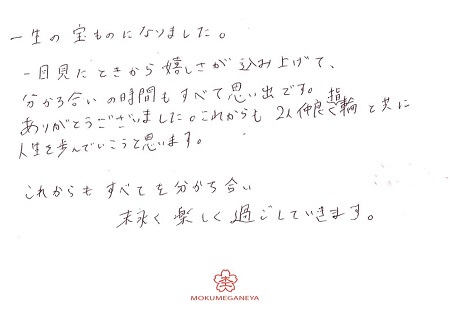 一生の宝ものになりました。
一目見たときから嬉しさが込み上げて、
分かち合いの時間もすべて思い出です。
ありがとうございました。これからも2人仲良く指輪と共に
人生を歩んでいこうと思います。
これからもすべてを分かち合い
末永く楽しく過ごしていきます。
MOKUMEGANEYA